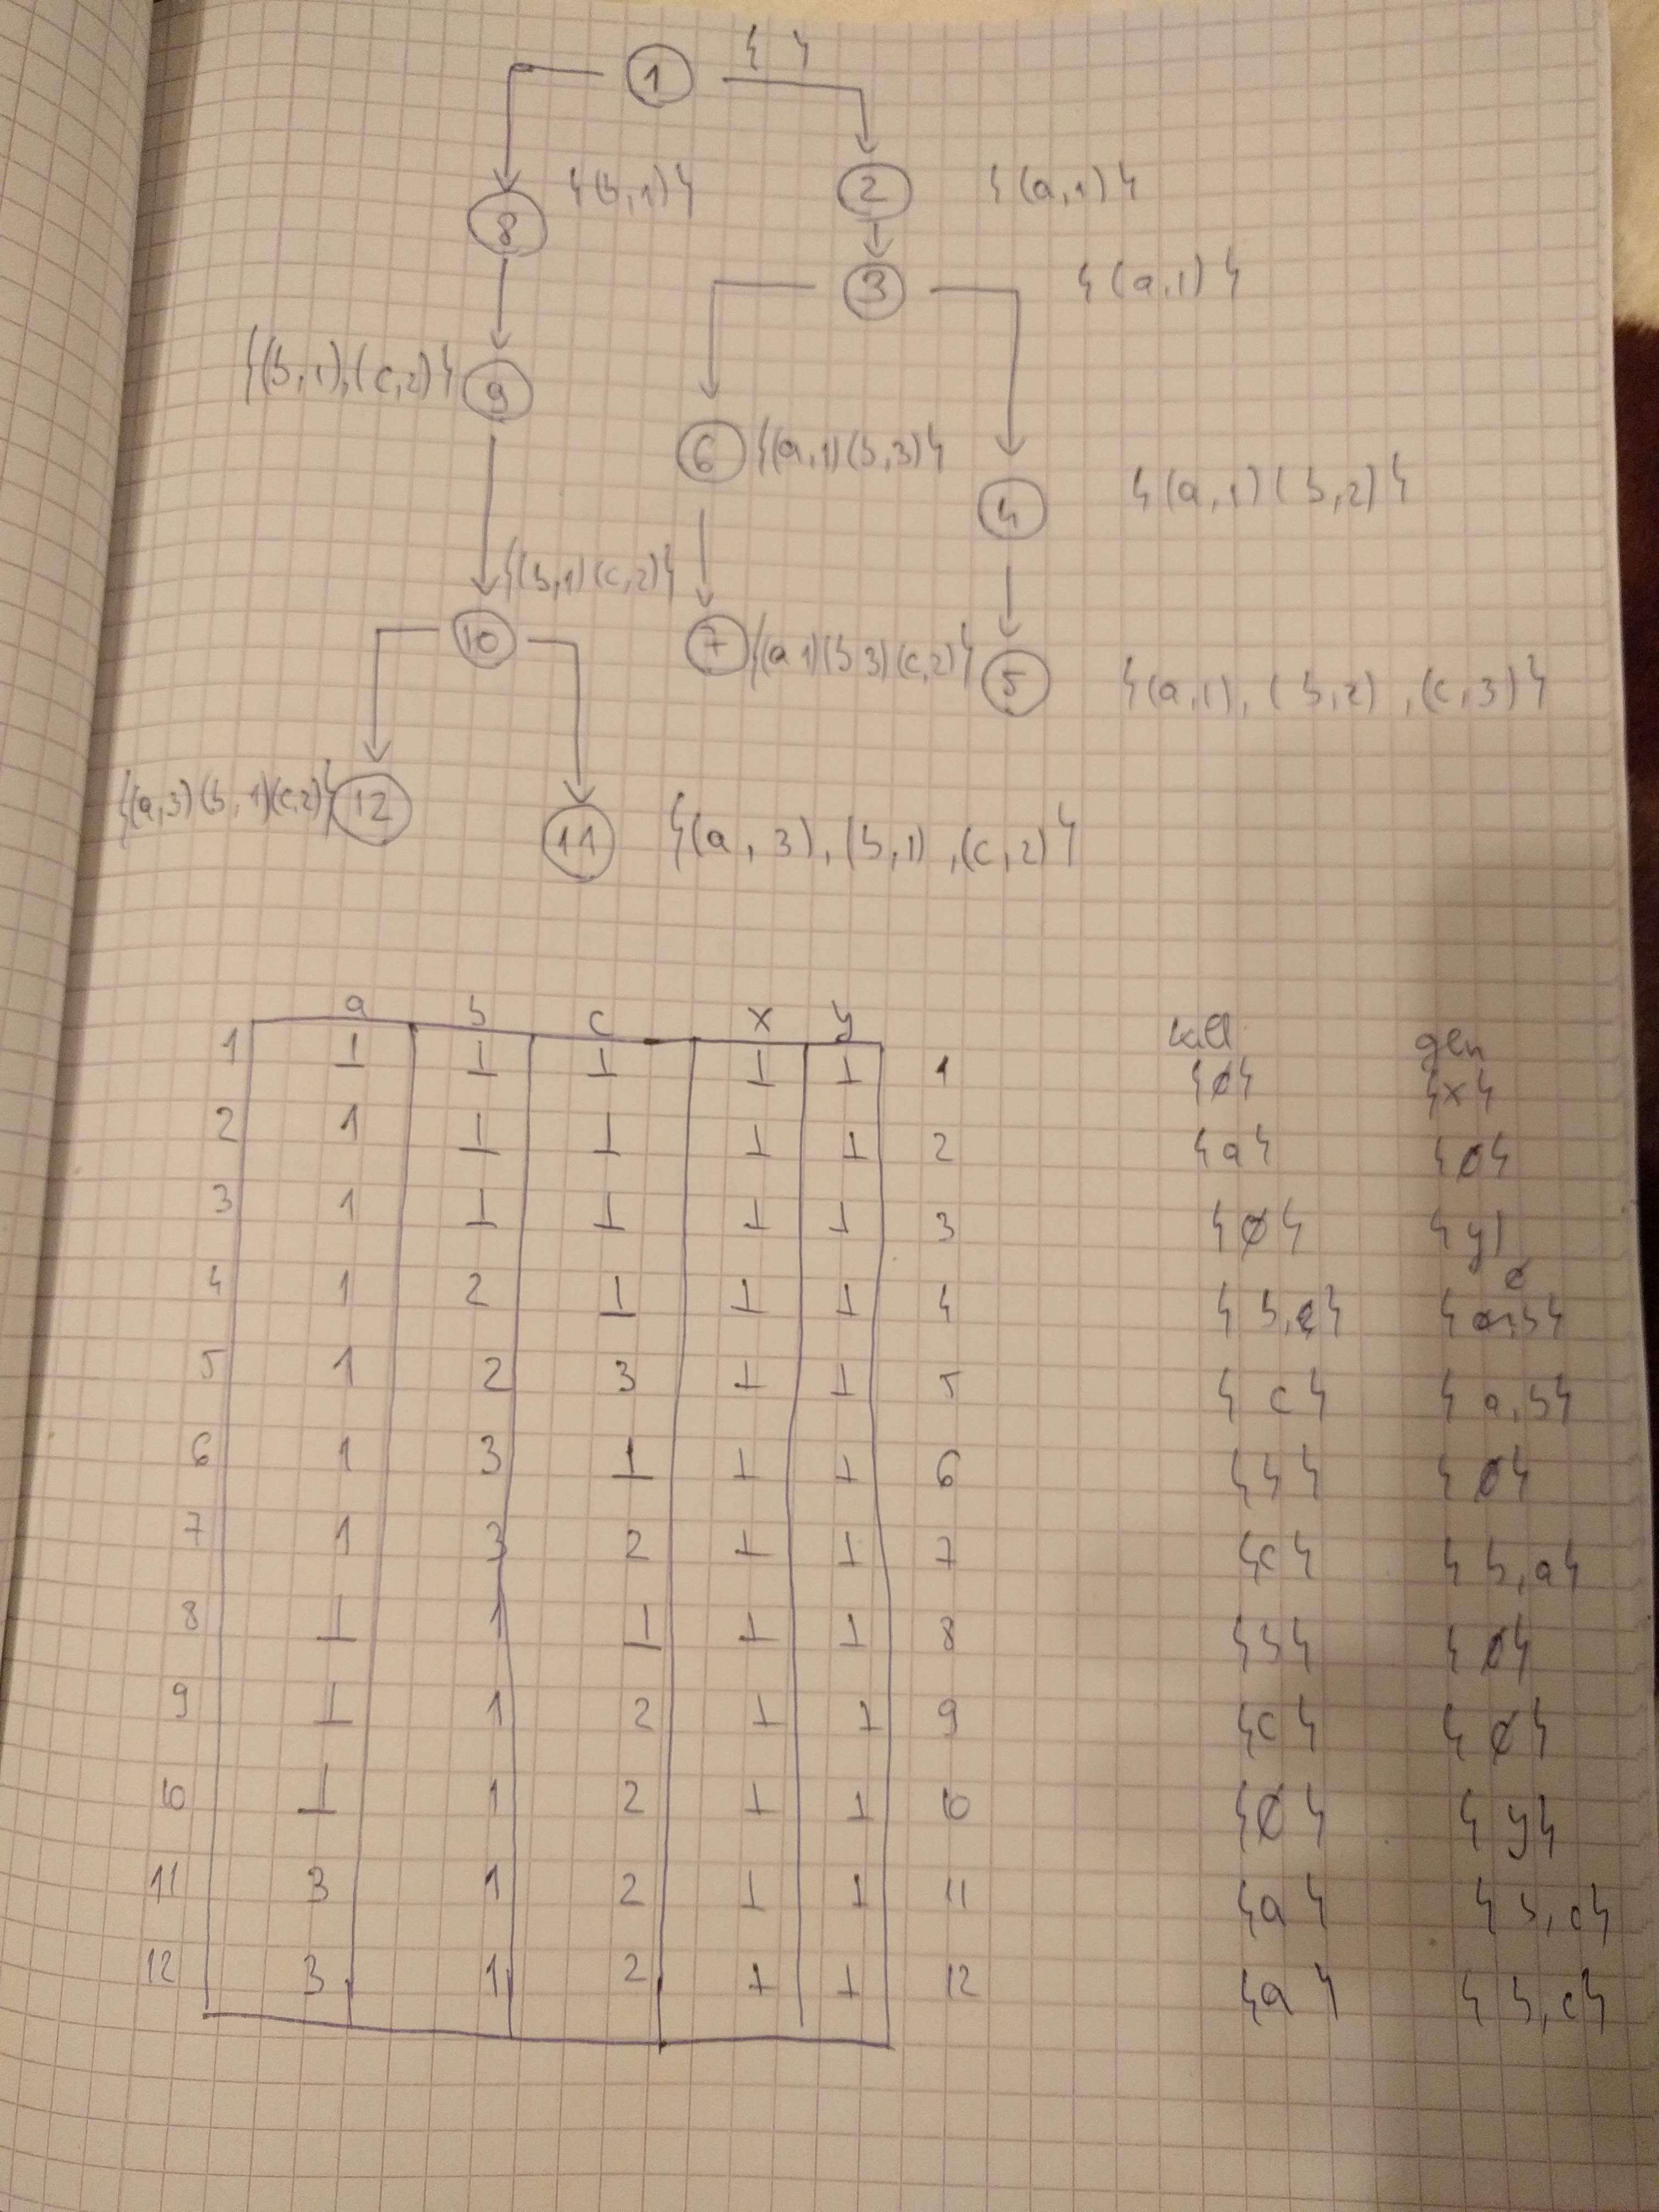 1 { }
8 {(b,1)} 2 {(a,1)}
3 {(a,1)}
{(b,1),(c,2)} 9
6 {(a,1)(b,3)} 4 {(a,1)(b,2)}
{(b,1)(c,2)}
10 7 {(a 1)(b 3)(c,2)} 5 {(a,1),(b,2),(c,3)}
{(a,3)(b,1)(c,2)} 12 11 {(a,3),(b,1),(c,2)}
a b c x y kill gen
1 ⊥ ⊥ ⊥ ⊥ ⊥ 1 {ø} {x}
2 1 ⊥ ⊥ ⊥ ⊥ 2 {a} {ø}
3 1 ⊥ ⊥ ⊥ ⊥ 3 {ø} {y}
4 1 2 ⊥ ⊥ ⊥ 4
5 1 2 3 ⊥ ⊥ 5 {c} {a,b}
6 1 3 ⊥ ⊥ ⊥ 6 {b} {ø}
7 1 3 2 ⊥ ⊥ 7 {c} {b,a}
8 ⊥ 1 ⊥ ⊥ ⊥ 8 {b} {ø}
9 ⊥ 1 2 ⊥ ⊥ 9 {c} {ø}
10 ⊥ 1 2 ⊥ ⊥ 10 {ø} {y}
11 3 1 2 ⊥ ⊥ 11 {a} {b,c}
12 3 1 2 ⊥ ⊥ 12 {a} {b,c}